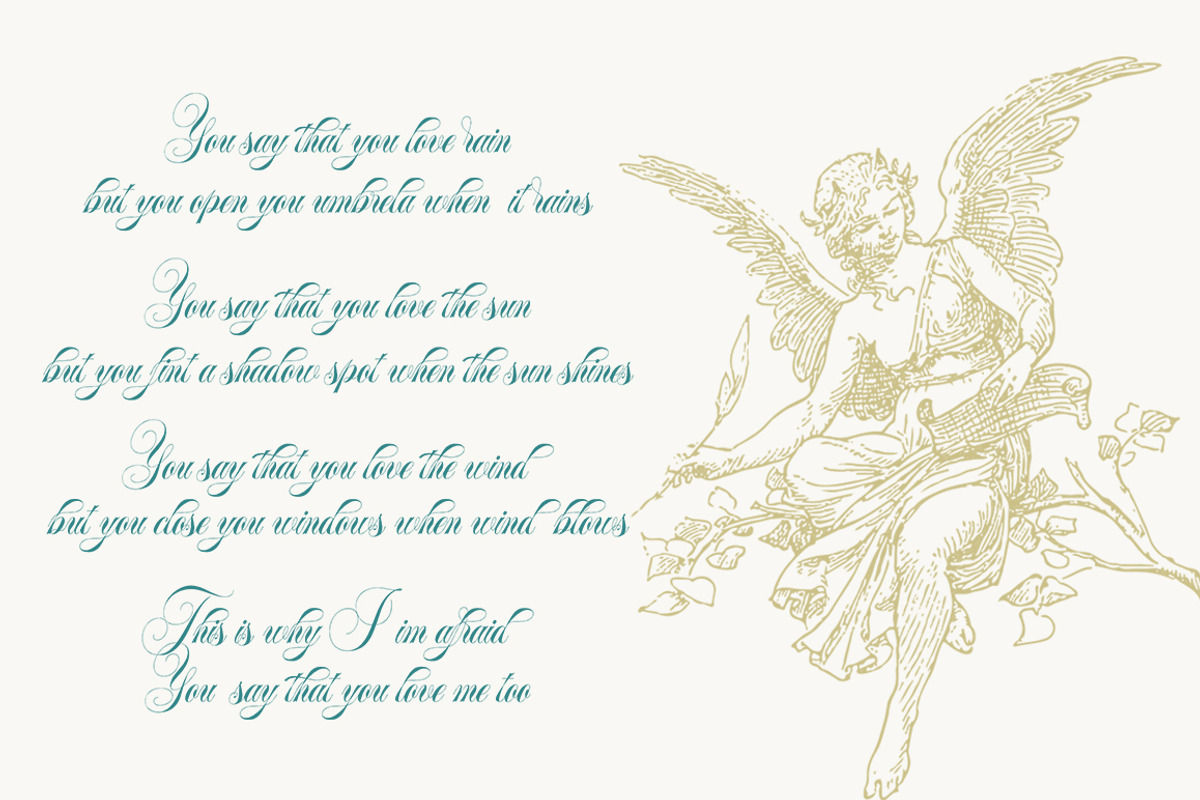 You say that you love rain
but you open you umbrela when it rains
You say that you love the sun
but you fint a shadow spot when the sun shines
You say that you love the wind
but you close you windows when wind blows
This is why I im afraid
You say that you love me too